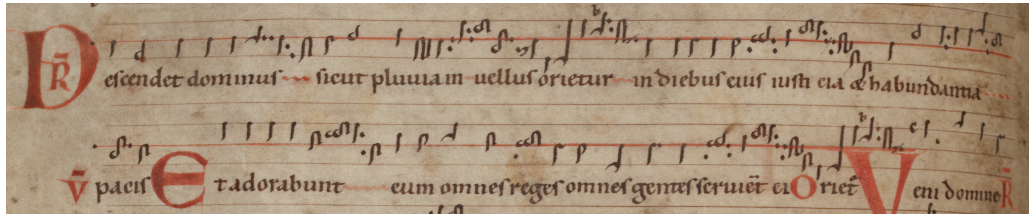 R̄ Descendet dominus sicut pluuia in uellus orietur in diebus eius iusticia & habundantia
pacis V̄ Et adorabunt eum omnes reges omnes gentes seruiēt ei Oriet᷑ Veni domine R̄